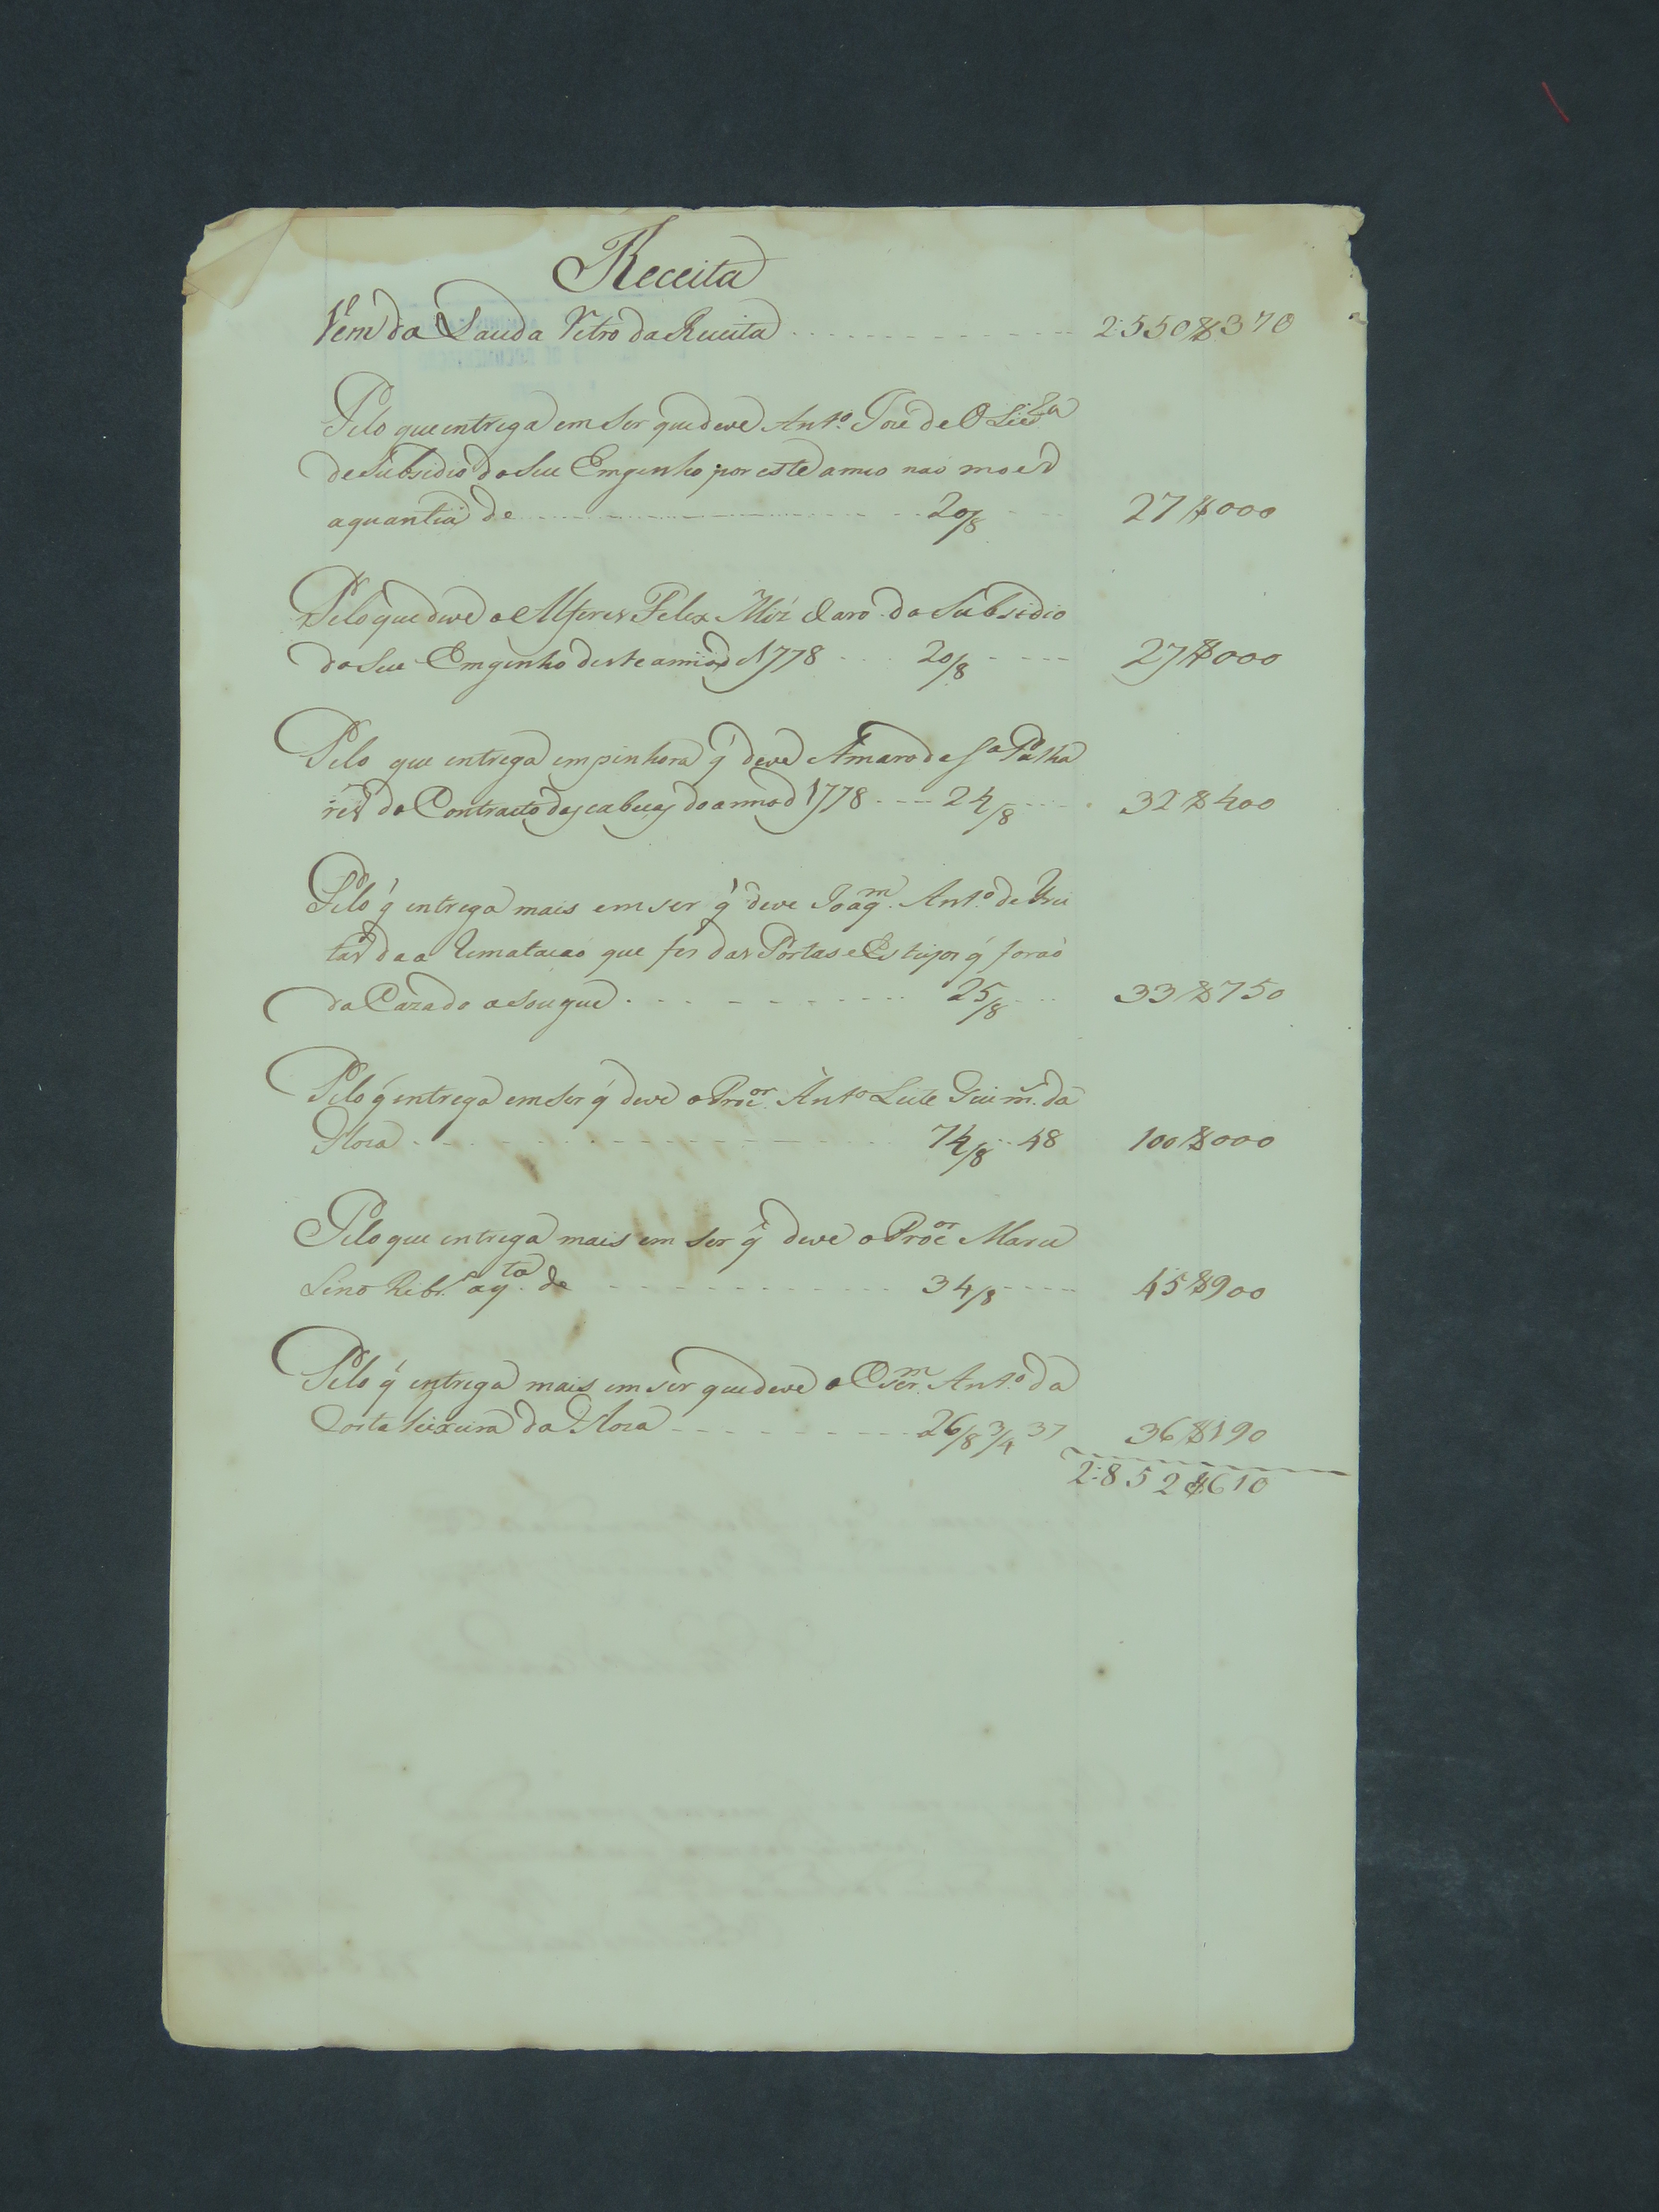 Receita
Vem da Lauda Retro da Receita 2550$370
Pelo que entrega em ser que deve Anto. Jose de Olivra
de Subsidio do Seu Emgenho por este anno naó moer
aquantia de 20/8 27$000
Pelo que deve o Alferes Felex Miz Claro do Subsidio
do Seu Emgenho deste anno d 1778 20/8 27$000
Pelo que entrega empenhora q́ deve Amaro de Sa Palha
res do Contracto das cabeças do anno d 1778 24/8 32$400
Pelo q́ entrega mais em ser q́ deve Joaqm. Anto. de
da a Rematacaó que fes das Portas e q́ foraó
da Caza do asougue 25/8 33$750
Pelo q́ entrega em ser q́ deve o Procor. Anto Leite Guimes. da
74/8 48 100$000
Pelo que entrega mais em ser q́ deve o Procor Marce
Lino Ribro aqta. de 34/8 45$900
Pelo q́ entrega mais em ser que deve o Anto. da
Costa Teixeira da 26/8 3/4 37 36$190
2:852$610